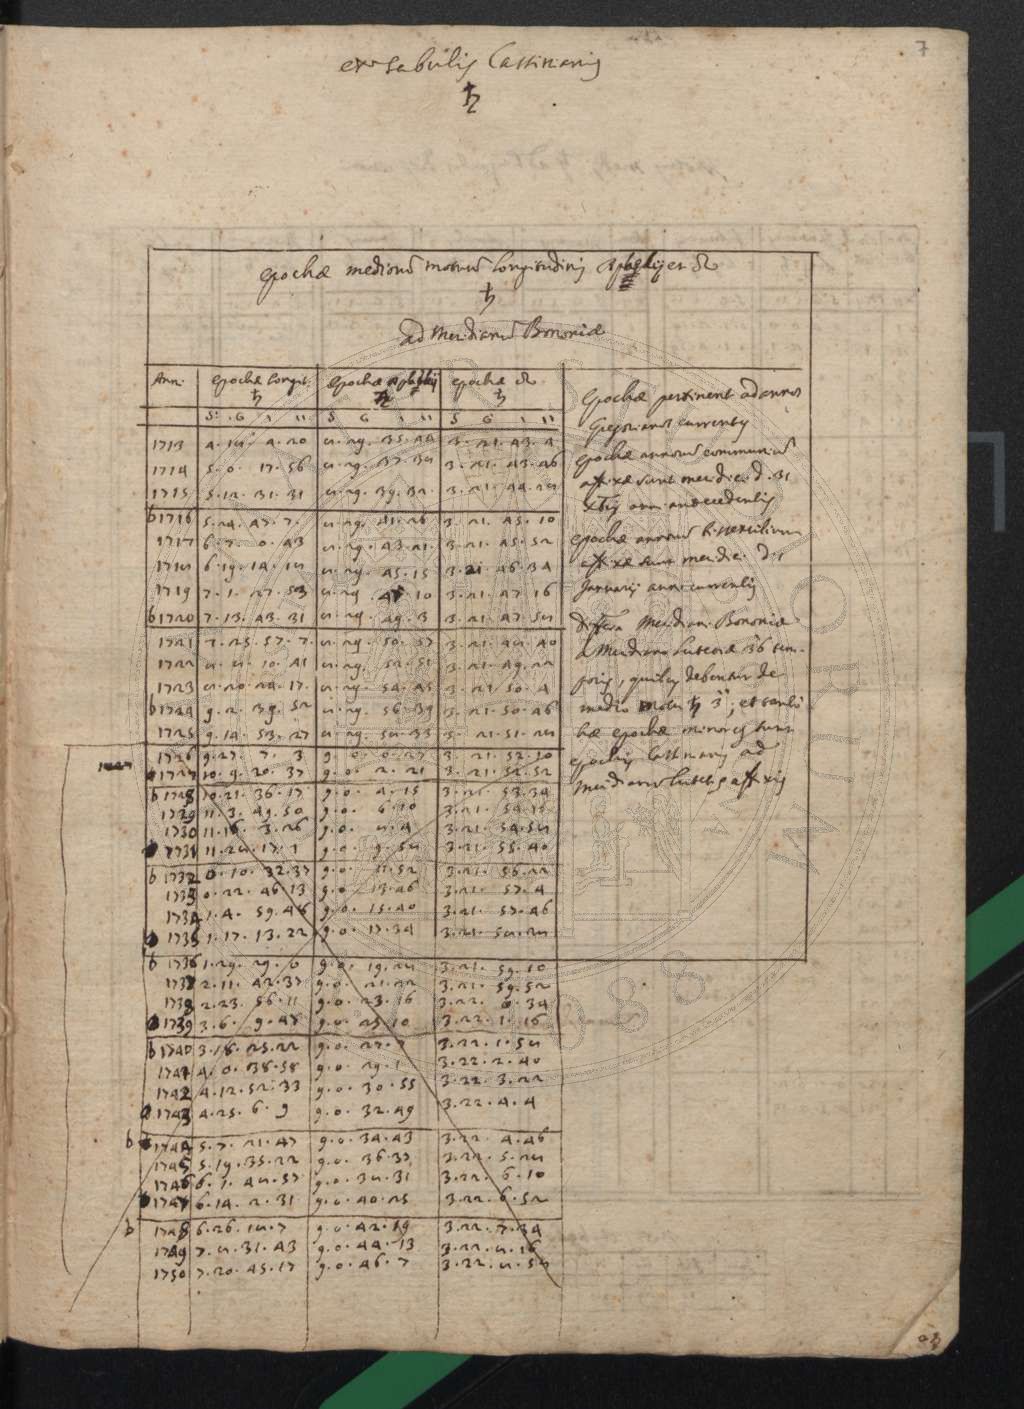 ex Tabulis Cassinianis
♄
7
Epochæ mediorum motuum longitudinis Aphelij et ☊
♄
ad Meridianum Bononiæ
Ann. Epochæ longit. ♄ Epochæ Aphelij ♄ Epochæ ☊ ♄
S G ' '' S G ' '' S G ' ''
1713 4. 18. 4. 20 8. 29. 35. 44 3. 21. 43. 3
1714 5. 0. 17. 56 8. 29. 37. 38 3. 21. 43. 46
1715 5. 12. 31. 31 8. 29. 39. 32 3. 21. 44. 28
b 1716 5. 24. 47. 7 8. 29. 41. 26 3. 21. 45. 10
1717 6. 7. 0. 43 8. 29. 43. 21 3. 21. 45. 52
1718 6. 19. 14. 18 8. 29. 45. 15 3. 21. 46. 34
1719 7. 1. 27. 53 8. 29. 47. 10 3. 21. 47. 16
b 1720 7. 13. 43. 31 8. 29. 49. 3 3. 21. 47. 58
1721 7. 25. 57. 7 8. 29. 50. 57 3. 21. 48. 40
1722 8. 8. 10. 41 8. 29. 52. 51 3. 21. 49. 22
1723 8. 20. 24. 17 8. 29. 54. 45 3. 21. 50. 4
b 1724 9. 2. 39. 52 8. 29. 56. 39 3. 21. 50. 46
1725 9. 14. 53. 27 8. 29. 58. 33 3. 21. 51. 28
1726 9. 27. 7. 3 9. 0. 0. 27 3. 21. 52. 10
1727 10. 9. 20. 37 9. 0. 2. 21 3. 21. 52. 52
b 1728 10. 21. 36. 17 9. 0. 4. 15 3. 21. 53. 34
1729 11. 3. 49. 50 9. 0. 6. 10 3. 21. 54. 16
1730 11. 16. 3. 26 9. 0. 8. 4 3. 21. 54. 58
1731 11. 28. 17. 1 9. 0. 9. 58 3. 21. 55. 40
b 1732 0. 10. 32. 37 9. 0. 11. 52 3. 21. 56. 22
1733 0. 22. 46. 13 9. 0. 13. 46 3. 21. 57. 4
1734 1. 4. 59. 48 9. 0. 15. 40 3. 21. 57. 46
1735 1. 17. 13. 22 9. 0. 17. 34 3. 21. 58. 28
b 1736 1. 29. 29. 0 9. 0. 19. 28 3. 21. 59. 10
1737 2. 11. 42. 37 9. 0. 21. 22 3. 21. 59. 52
1738 2. 23. 56. 11 9. 0. 23. 16 3. 22. 0. 34
1739 3. 6. 9. 47 9. 0. 25. 10 3. 22. 1. 16
b 1740 3. 18. 25. 22 9. 0. 27. 7 3. 22. 1. 58
1741 4. 0. 38. 58 9. 0. 29. 1 3. 22. 2. 40
1742 4. 12. 52. 33 9. 0. 30. 55 3. 22. 3. 22
1743 4. 25. 6. 9 9. 0. 32. 49 3. 22. 4. 4
b 1744 5. 7. 21. 47 9. 0. 34. 43 3. 22. 4. 46
1745 5. 19. 35. 22 9. 0. 36. 37 3. 22. 5. 28
1746 6. 1. 48. 57 9. 0. 38. 31 3. 22. 6. 10
1747 6. 14. 2. 31 9. 0. 40. 25 3. 22. 6. 52
b 1748 6. 26. 18. 7 9. 0. 42. 19 3. 22. 7. 34
1749 7. 8. 31. 43 9. 0. 44. 13 3. 22. 8. 16
1750 7. 20. 45. 17 9. 0. 46. 7 3. 22. 8. 58
Epochæ pertinent ad annos
Gregorianos currentes
Epochæ annorum communium
affixæ sunt meridiei d. 31
Xbris anni antecedentis
Epochæ annorum bissextilium
affixæ sunt meridiei d. 1
Januarij anni currentis
Meridiani Bononiæ
a Meridiano Lutetiæ 36 tem-
poris, quibus debentur de
medio motu ♄ 3'', et tanti
hæ epochæ minores sunt
epochis Cassinianis ad
meridianum Lutetiæ affixis